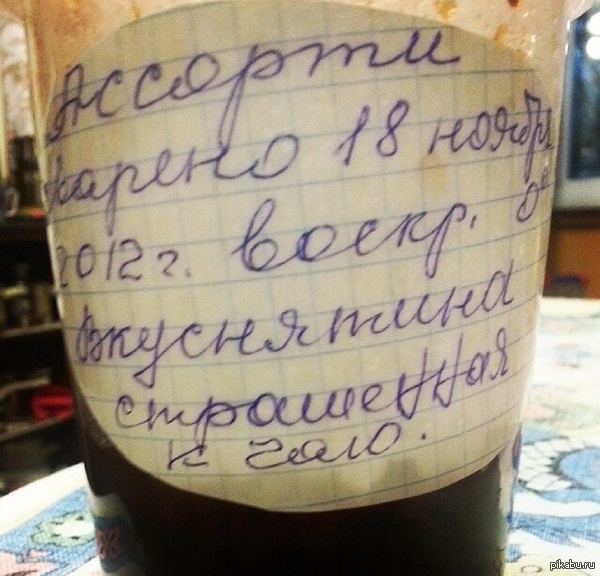 Ассорти
варено 18 ноября
2012г. воскр. 0°
Вкуснятина
страшенная
к чаю.
pikabu.ru